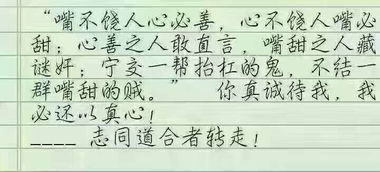 “嘴不饶人心必善，心不饶人嘴必
甜；心善之人敢直言，嘴甜之人藏
谜奸；宁交一帮抬杠的鬼，不结一
群嘴甜的贼。” 你真诚待我，我
必还以真心！
____ 志同道合者转走！